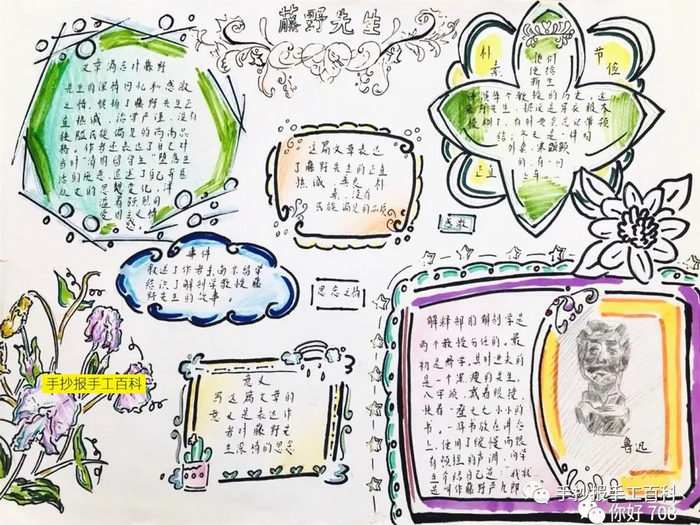 藤野先生
文章满怀对藤野
先生的深情回忆和感激
之情,赞扬了藤野先生正
直热诚、治学严谨、没有
狭隘民族偏见的高尚品
格。作者还表达了自己对
当时"清国留学生"
从文的思想变化,洋
溢着强烈的
爱国主义情
感。
这篇文章表达
了藤野先生的正直
热诚、
民族偏见的品质
朴素
节俭
正直
感激
事件
叙述了作者东南
结识了解剖学教授藤
野先生的故事。
思念之情
意义
写这篇文章的
意义是表达作
者对藤野先
生深情的思念
解释部的解剖学是
两个教授分任的。最
初是骨学。其时进来的
是一个黑瘦的先生,
八字须,戴着眼镜,
挟着一叠大大小小的
书。一将书放在讲台
上,便用了缓慢而很
有顿挫的声调,向学
生介绍自己道:我就
是叫作藤野严九郎
鲁迅
手抄报手工百科
手抄报手工百科
你好 708